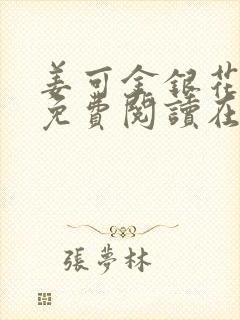 姜可金銀花
免費閱讀在
張夢林